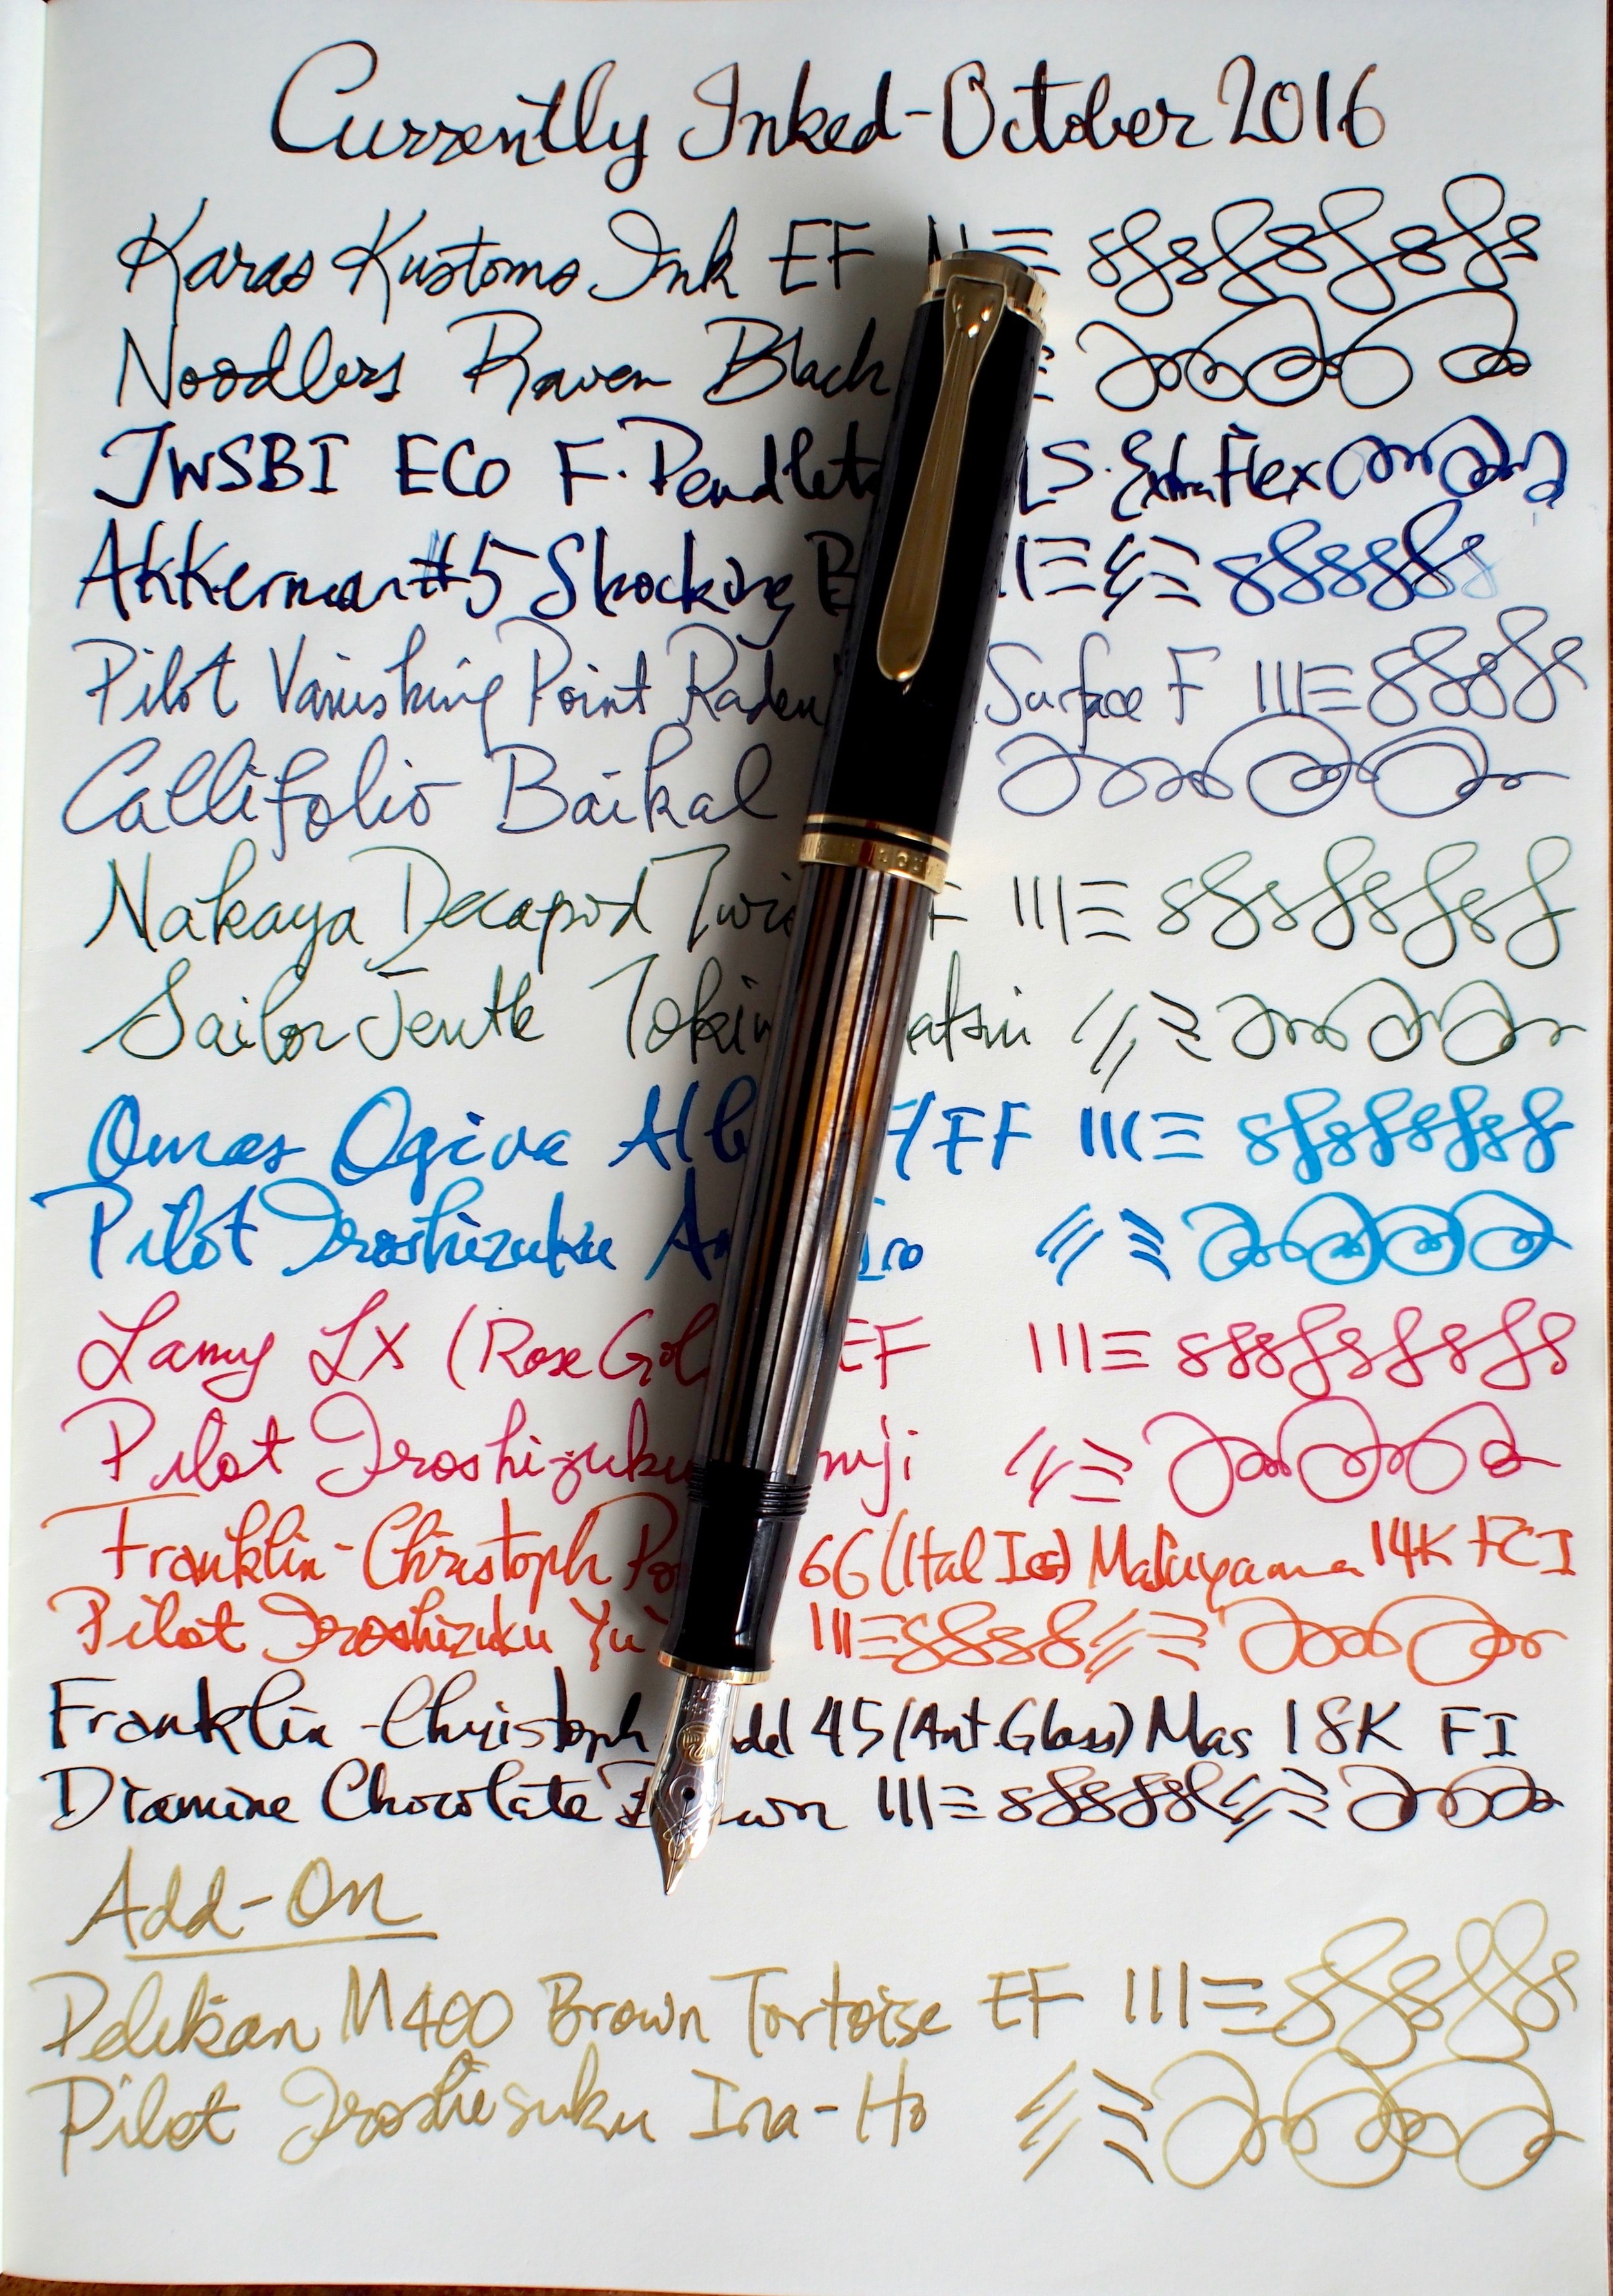 Currently Inked - October 2016
Karas Kustoms Ink EF
Noodlers Raven Black
TWSBI ECO F. Pendlet LS. Extra Flex
Akkerman #5 Shocking B
Pilot Vanishing Point Raden Surface F
Callifolio Baikal
Nakaya Decapod Twis F
Sailor Jentle Tokiw atsu
Omas Ogiva Alb / EF
Pilot Iroshizuku A Iro
Lamy LX (Rose Gol EF
Pilot Iroshizuku miji
Franklin-Christoph Po 66 (Ital Ice) Masuyama 14K FCI
Pilot Iroshizuku Yu
Franklin-Christoph del 45 (Ant. Glass) Mas 18K FI
Diamine Chocolate B own
Add-On
Pelikan M400 Brown Tortoise EF
Pilot Iroshizuku Ina-Ho